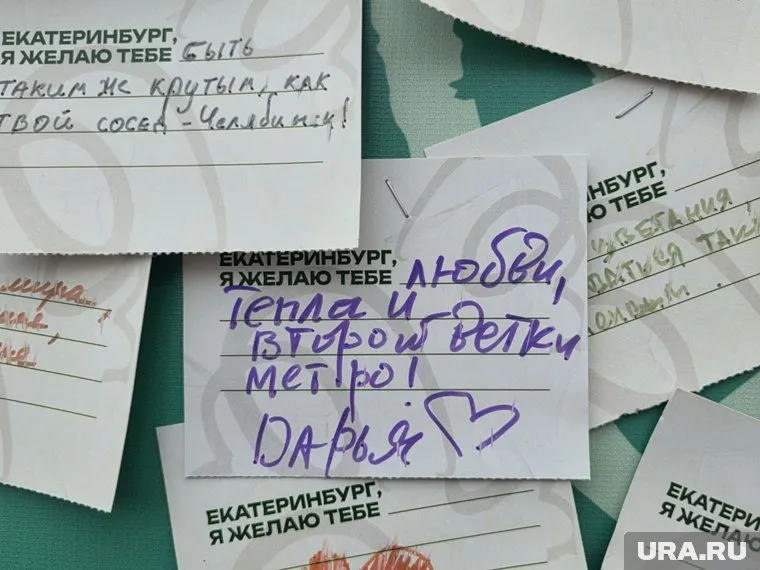 ЕКАТЕРИНБУРГ,
Я ЖЕЛАЮ ТЕБЕ БЫТЬ
ТАКИМ ЖЕ КРУТЫМ, КАК
ТВОЙ СОСЕД - Челябинск!
ЕКАТЕРИНБУРГ,
Я ЖЕЛАЮ ТЕБЕ ЛЮБВИ,
Тепла и
второй ветки
метро!
Дарья
НБУРГ,
Ю ТЕБЕ
ЕКАТЕРИНБУРГ,
Я ЖЕЛАЮ ТЕБЕ
ЕКАТЕРИНБУРГ
Я ЖЕЛАЮ ТЕБЕ
URA.RU